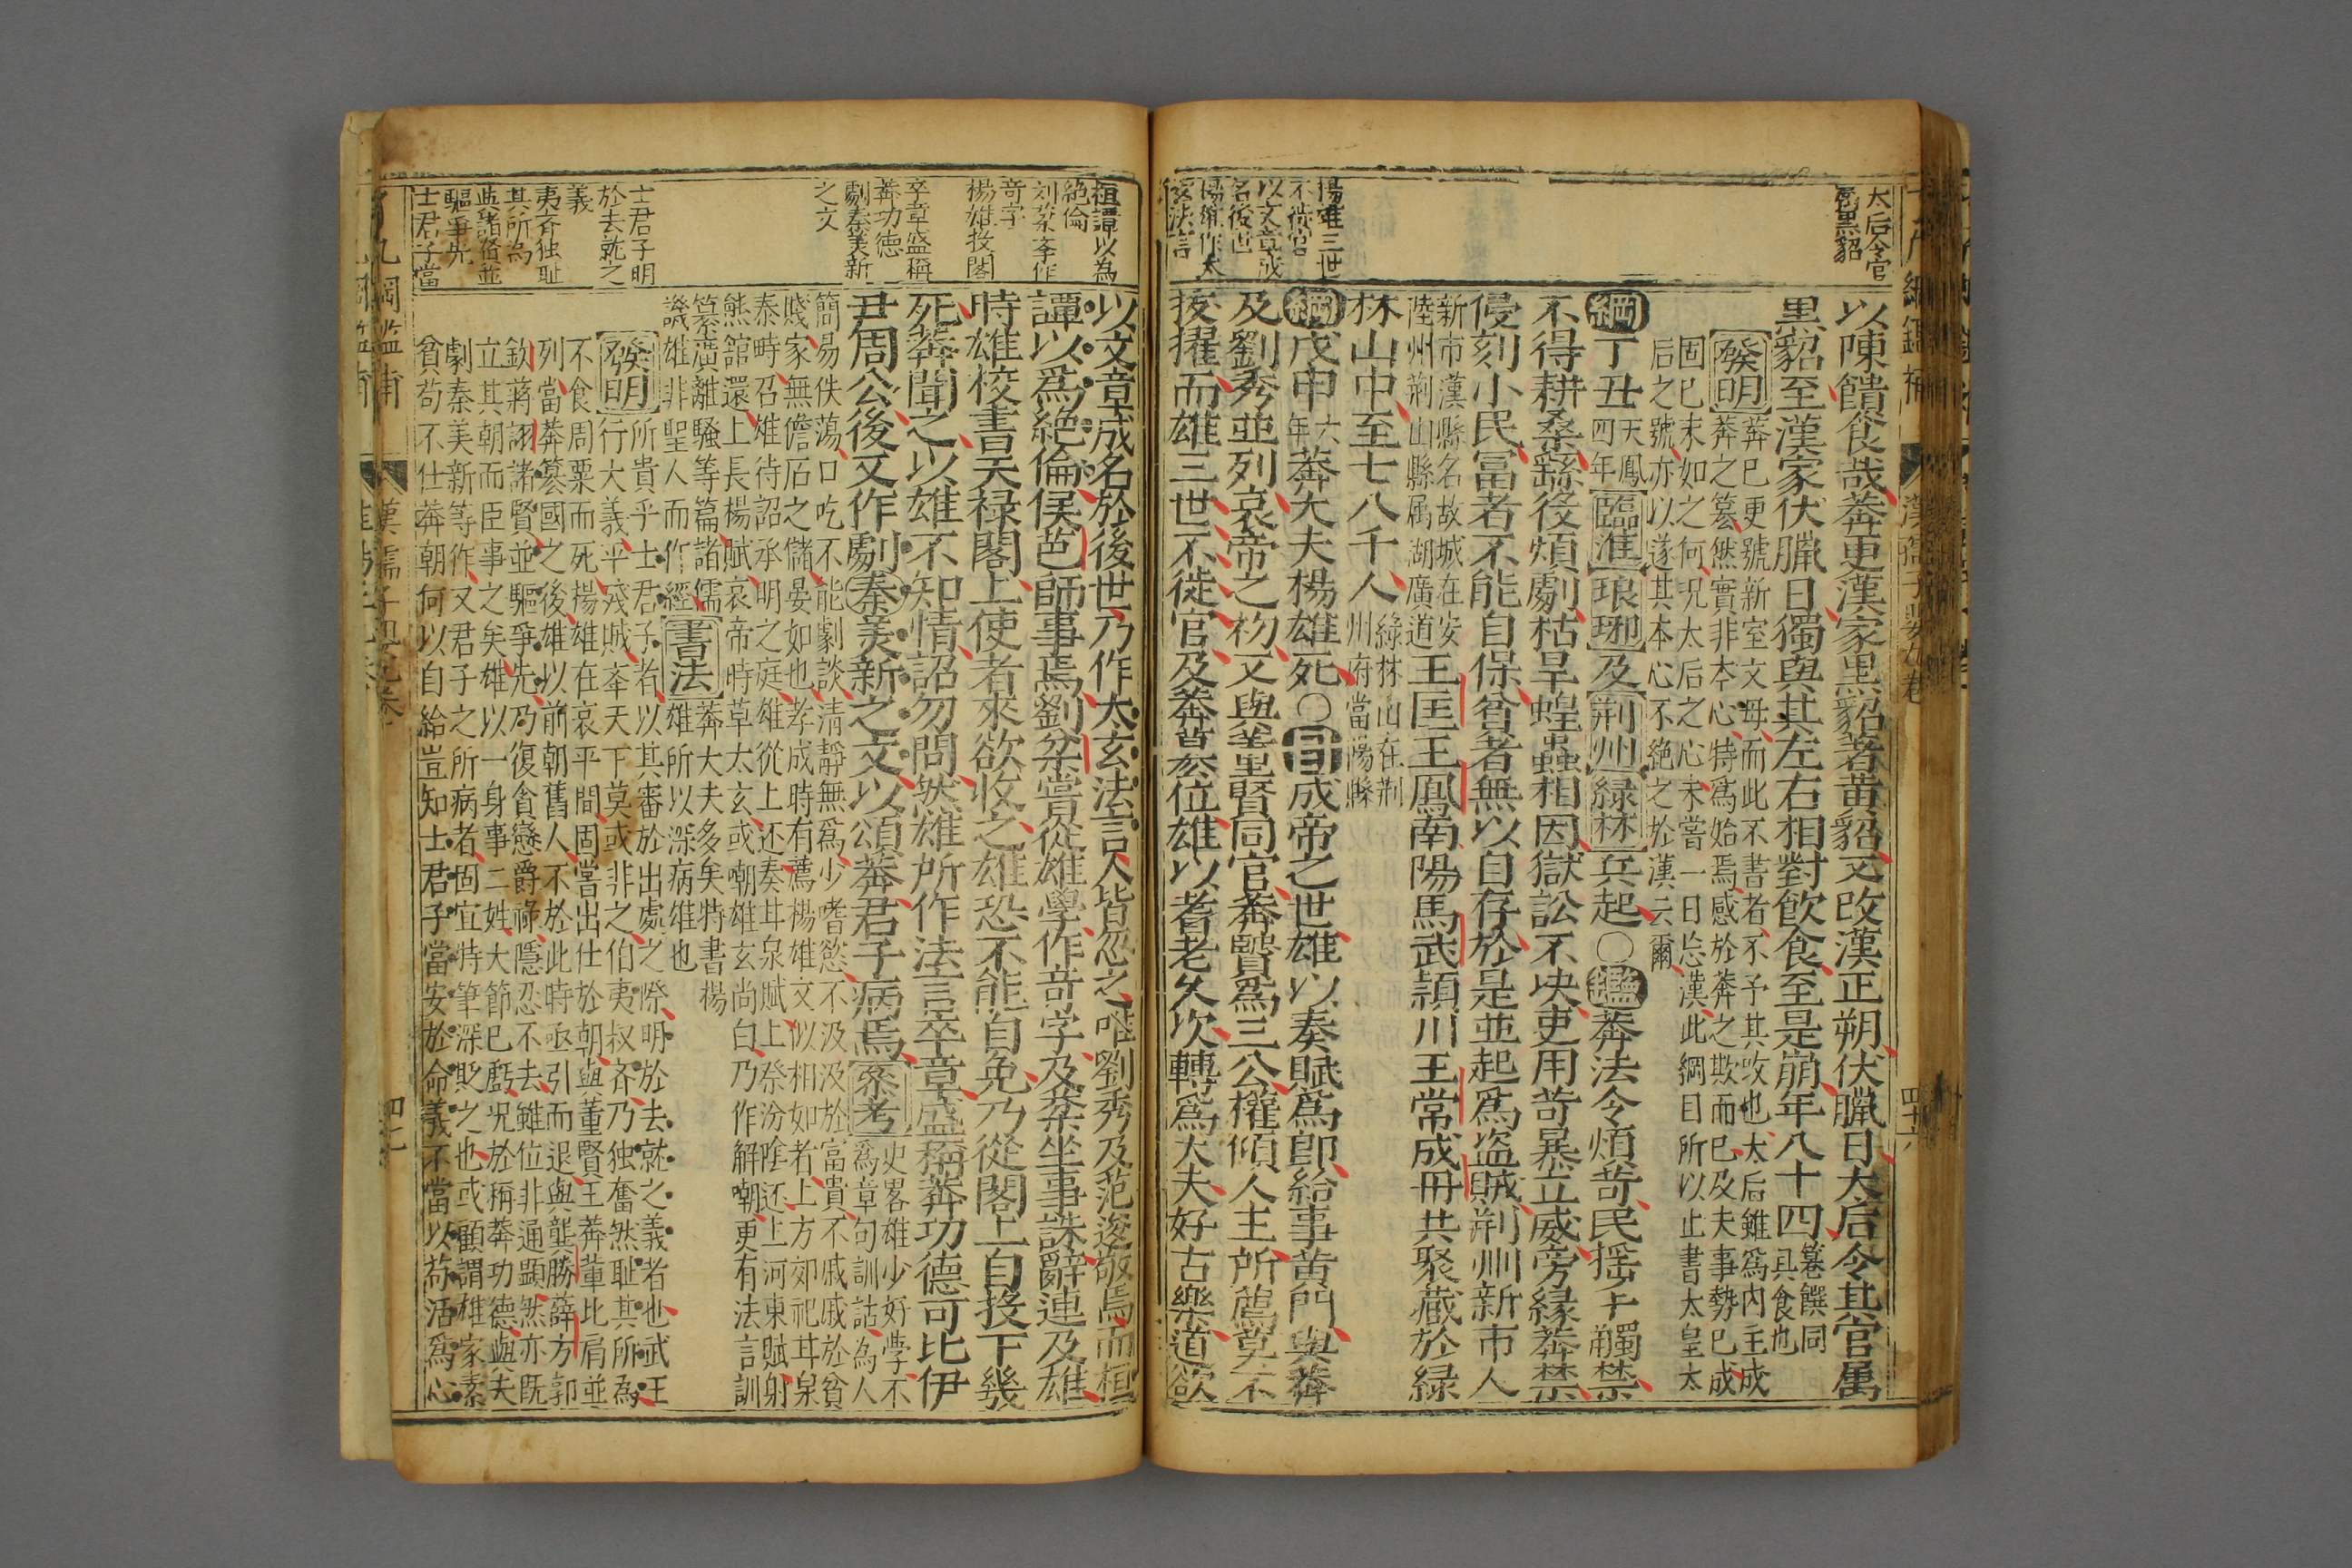 太后令官
屬黑貂
以陳饋食哉莽更漢家黑貂著黃貂又改漢正朔伏臘日太后令其官屬
黑貂至漢家伏臘日獨與其左右相對飲食至是崩年八十四篹饌同
具食也
發明莽已更號新室文母而此不書者不予其改也太后雖爲內主成
莽之篡然實非本心特爲始焉感於莽之欺而已及夫事勢已成
固已末如之何況太后之心未嘗一日忘漢此綱目所以止書太皇太
后之號亦以遂其本心不絕之於漢云爾
綱丁丑天鳳
四年臨淮琅琊及荆州緑林兵起○鑑莽法令煩苛民揺手觸禁
不得耕桑繇役煩劇枯旱蝗蟲相因獄訟不决吏用苛暴立威旁緣莽禁
侵刻小民冨者不能自保貧者無以自存於是並起爲盜賊荆州新市人
新市漢縣名故城在安
陸州荆山縣属湖廣道王匡王鳳南陽馬武頴川王常成冊共聚藏於緑
林山中至七八千人綠林山在荆
州府當陽縣
楊雄三世
不徙官
以文章成
名後世
楊雄作太
玄法言
綱戊申六
年莽大夫楊雄死○目成帝之世雄以奏賦爲郎給事黄門與莽
及劉秀並列哀帝之初又與董賢同官莽賢爲三公權傾人主所薦莫不
拔擢而雄三世不徙官及莽簒位雄以耆老久次轉爲大夫好古樂道欲
桓譚以為
絶倫
刘棻李作
竒字
楊雄投閣
卒章盛稱
莽功德
劇秦美新
之文
以文章成名於後世乃作太玄法言人皆忽之唯劉秀及范逡敬焉而桓
譚以爲絶倫侯芭師事焉劉棻嘗從雄學作竒字及棻坐事誅辭連及雄
時雄校書天禄閣上使者來欲收之雄恐不能自免乃從閣上自投下幾
死莽聞之以雄不知情詔勿問然雄所作法言卒章盛稱莽功德可比伊
尹周公後又作劇秦美新之文以頌莽君子病焉叅考史畧雄少好學不
為章句訓詁為人
簡易佚蕩口吃不能劇談清靜無爲少嗜慾不汲汲於富貴不戚戚於貧
賤家無儋石之儲晏如也孝成時有薦楊雄文似相如者上方郊祀甘泉
泰畤召雄待詔承明之庭雄從上还奏甘泉賦上祭汾陰还上河東賦射
熊舘還上長楊賦哀帝時草太玄或嘲雄玄尚白乃作解嘲更有法言訓
纂廣離騷等篇諸儒
譏雄非聖人而作經書法莽大夫多矣特書楊
雄所以深病雄也
士君子明
於去就之
義
夷齐独耻
其所為
與諸俗並
驅爭先
士君子當
發明所貴乎士君子者以其審於出處之際明於去就之義者也武王
行大義平殘賊奄天下莫或非之伯夷叔齐乃独奮然耻其所為
不食周粟而死楊雄在哀平間固嘗出仕於朝與董賢王莽軰比肩並
列當莽簒國之後雄以前朝舊人不於此時亟引而退與龔勝薛方郭
欽蔣詡諸賢並驅爭先乃復貪戀爵祿隱忍不去雖位非通顯然亦既
立其朝而臣事之矣雄以一身事二姓大節已虧况於稱莽功德與夫
劇秦美新等作又君子之所病者固宜特筆深貶之也或顧謂雄家素
貧苟不仕莽朝何以自給豈知士君子當安於命義不當以苟活爲心